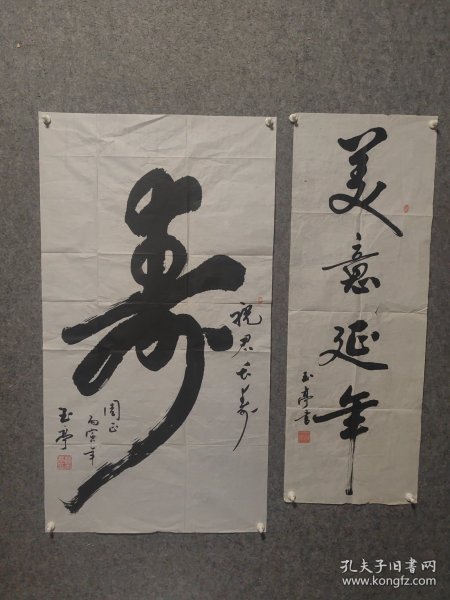 寿
祝君长寿
丙寅年
玉亭
美意延年
玉亭书
孔夫子旧书网
www.kongfz.com